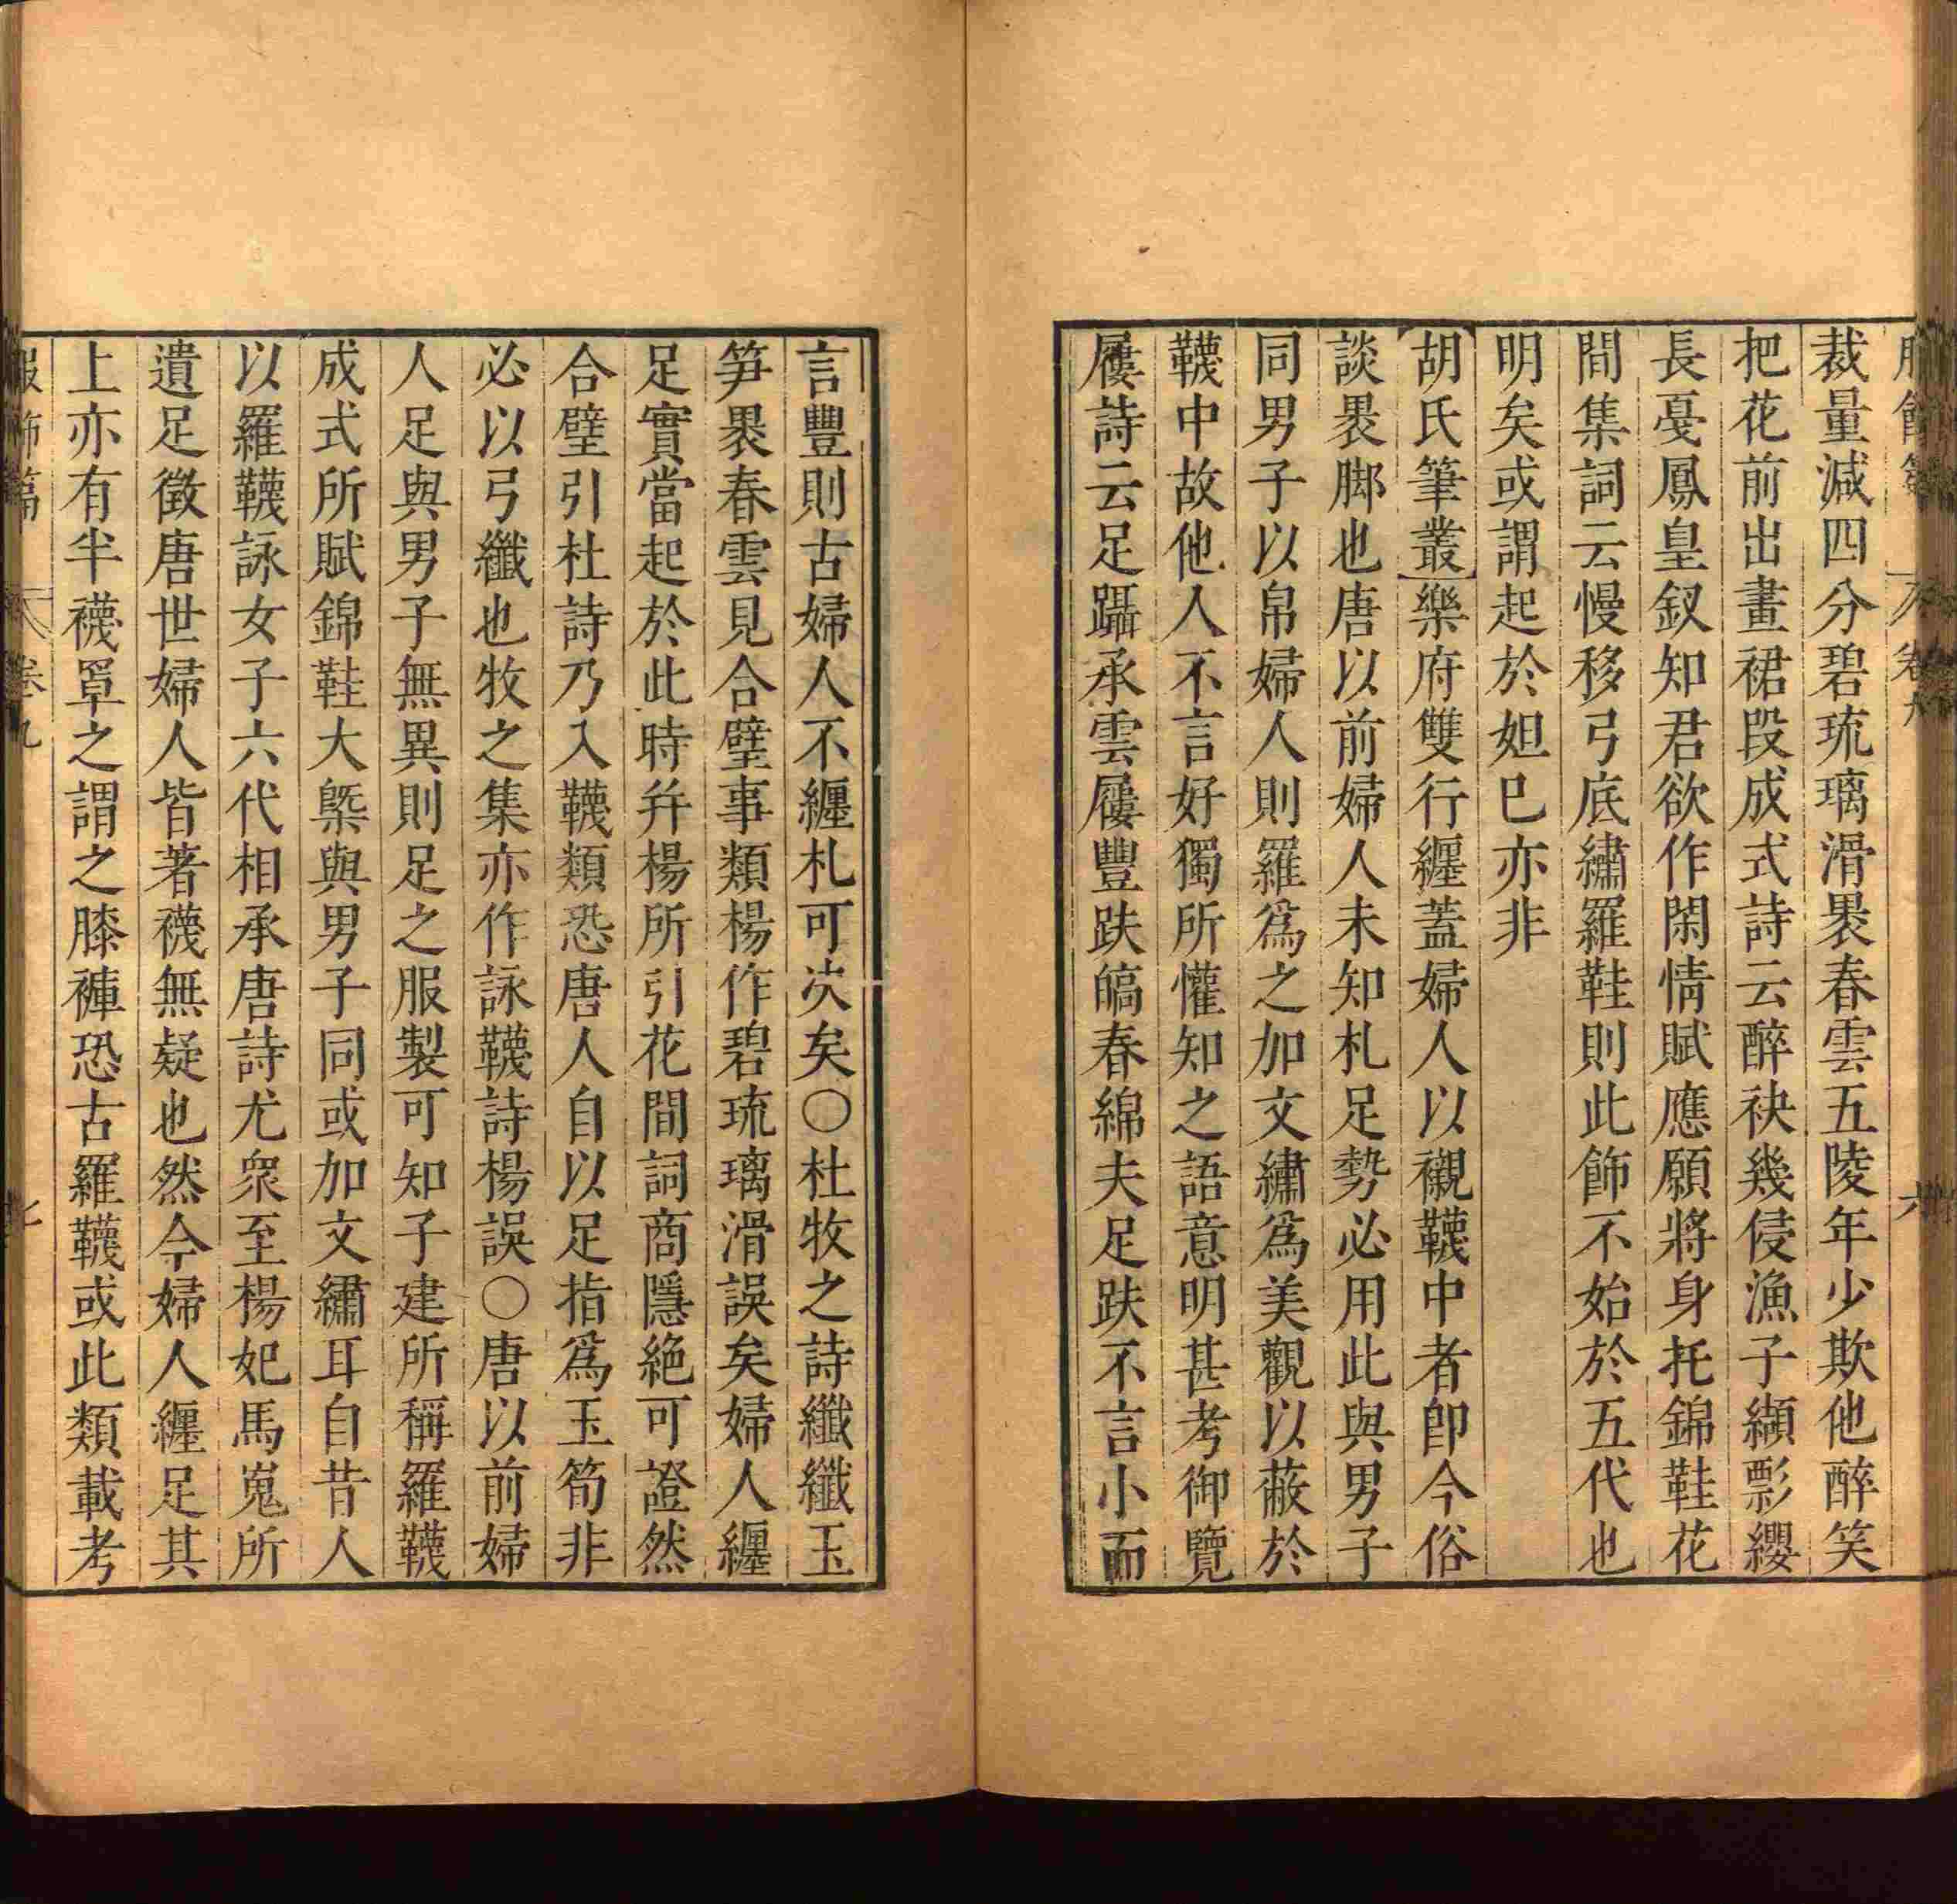 裁量減四分碧琉璃滑褁春雲五陵年少欺他醉笑
把花前出畫裙段成式詩云醉袂幾侵漁子纈彯纓
長戞鳳皇釵知君欲作閑情賦應願將身托錦鞋花
間集詞云慢移弓底繡羅鞋則此飾不始於五代也
明矣或謂起於妲巳亦非
胡氏筆叢樂府雙行纏蓋婦人以襯韈中者即今俗
談褁脚也唐以前婦人未知札足勢必用此與男子
同男子以帛婦人則羅爲之加文繡爲美觀以蔽於
韈中故他人不言好獨所懽知之語意明甚考御覽
屨詩云足躡承雲屨豐趺皜春綿夫足趺不言小而
言豐則古婦人不纏札可决矣○杜牧之詩纖纖玉
笋褁春雲見合璧事類楊作碧琉璃滑誤矣婦人纏
足實當起於此時幷楊所引花間詞商隱絶可證然
合璧引杜詩乃入韈類恐唐人自以足指爲玉筍非
必以弓纖也牧之集亦作詠韈詩楊誤○唐以前婦
人足與男子無異則足之服製可知子建所稱羅韈
成式所賦錦鞋大槩與男子同或加文繡耳自昔人
以羅韈詠女子六代相承唐詩尤衆至楊妃馬嵬所
遺足徵唐世婦人皆著襪無疑也然今婦人纏足其
上亦有半襪罩之謂之膝褲恐古羅韈或此類載考
服飾篇 卷九